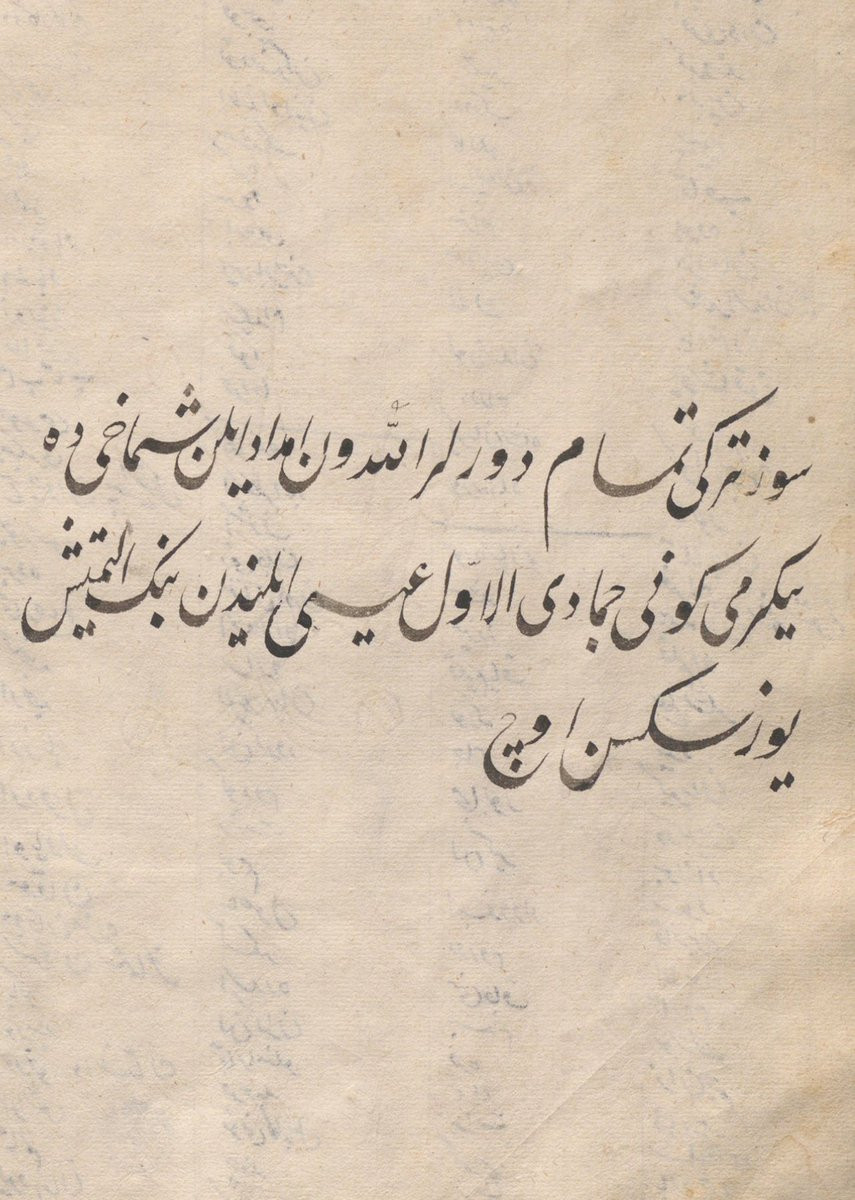 سوز ترکی تمام دورلر اللّه دون امداد ایلن شماخی ده
یکرمی کونی جمادی الاوّل عیسی ایلیندن بنک التمیش
یوز سکسن اوچ